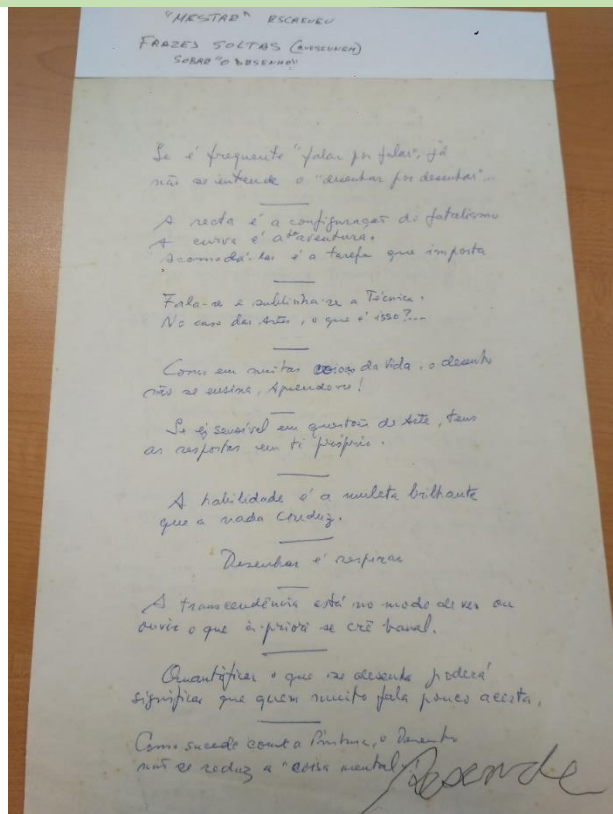 "MESTRE" ESCREVEU
FRAZES SOLTAS
SOBRE "O DESENHO"
Se é frequente "falar por falar", já
não se entende o "desenhar por desenhar"...
A recta é a configuração do fatalismo
A curva é a da aventura.
Acomodá-las é a tarefa que importa
Fala-se e sublinha-se a Técnica.
No caso das Artes, o que é isso?...
Como em muitas coisas da vida, o desenho
não se ensina, Aprende-se!
Se és sensível em questões de Arte, tens
as respostas em ti próprio.
A habilidade é a muleta brilhante
que a nada conduz.
Desenhar é respirar
A transcendência está no modo de ver ou
ouvir o que à-priori se crê banal.
Quantificar o que se desenha poderá
significar que quem muito fala pouco acerta.
Como sucede com a Pintura, o Desenho
não se reduz a "coisa mental".
Resende